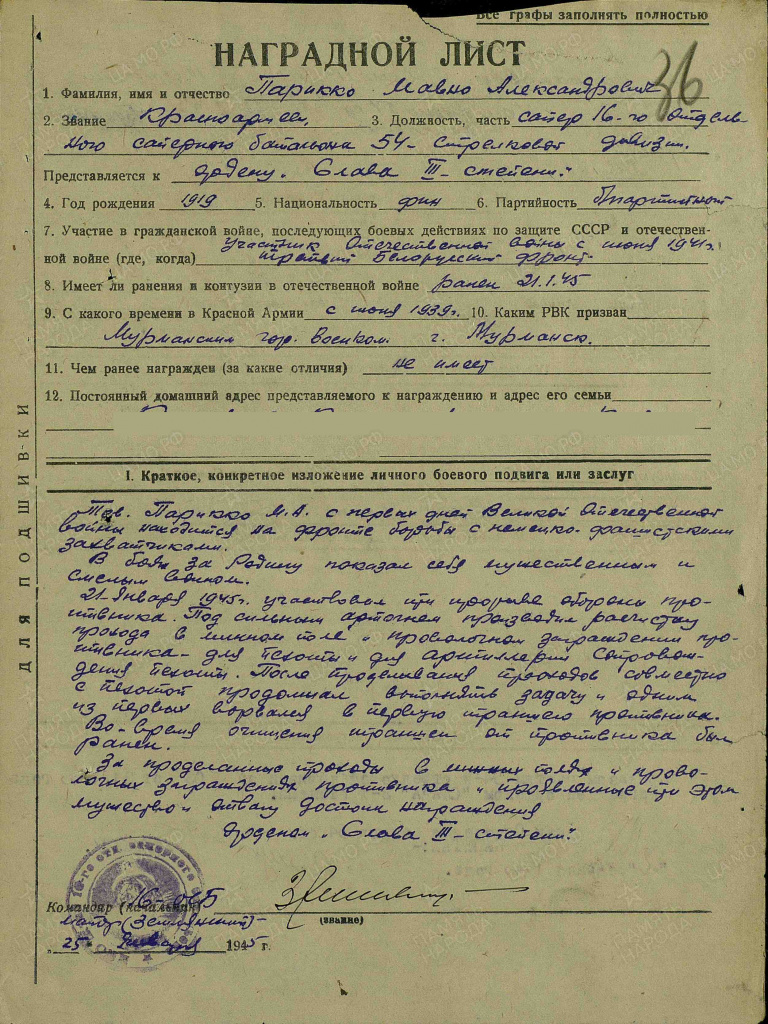 Все графы заполнять полностью
НАГРАДНОЙ ЛИСТ
36
1. Фамилия, имя и отчество Парикко Мавно Александрович
2. Звание Красноармеец, 3. Должность, часть сапер 16-го отдель
ного саперного батальона 54- стрелковой дивизии.
Представляется к ордену "Слава III- степени".
4. Год рождения 1919 5. Национальность фин 6. Партийность б/партийный
7. Участие в гражданской войне, последующих боевых действиях по защите СССР и отечествен-
участник Отечественной войны с июня 1941г.
ной войне (где, когда) третий Белорусский фронт
8. Имеет ли ранения и контузии в отечественной войне ранен 21.1.45
9. С какого времени в Красной Армии с июня 1939г. 10. Каким РВК призван
Мурманским гор. Военком. г. Мурманск.
11. Чем ранее награжден (за какие отличия) не имеет
12. Постоянный домашний адрес представляемого к награждению и адрес его семьи
ДЛЯ ПОДШИВКИ
I. Краткое, конкретное изложение личного боевого подвига или заслуг
Тов. Парикко М.А. с первых дней Великой Отечественной
войны находится на фронте борьбы с немецко-фашистскими
захватчиками.
В боях за Родину показал себя мужественным и
смелым воином.
21 Января 1945г. участвовал при прорыве обороны про-
тивника. Под сильным артогнем производил расчистку
прохода в минном поле и проволочном заграждении про-
тивника- для пехоты и для артиллерии сопровож-
дения пехоты. После проделывания проходов совместно
с пехотой продолжал выполнять задачу и одним
из первых ворвался в первую траншею противника.
Во-время очищения траншеи от противника был
ранен.
За проделанные проходы в минных полях и прово-
лочных заграждениях противника и проявленные при этом
мужество и отвагу достоин награждения
Орденом "Слава III- степени".
Командир (начальник) 16-ОСБ
майор (Землянский)-
(звание)
"25" Января 1945 г.